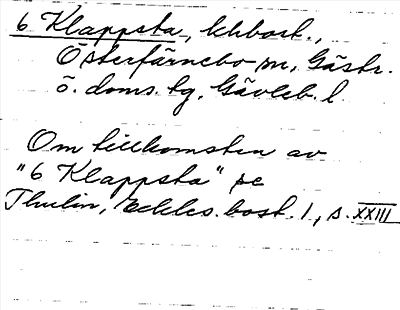 6 Klappsta, khbost.,
Österfärnebo sn, Gästr.
ö. doms. tg, Gävleb. l.
Om tillkomsten av
"6 Klappsta" se
Thulin, Eckles. bost. 1, s. XXIII